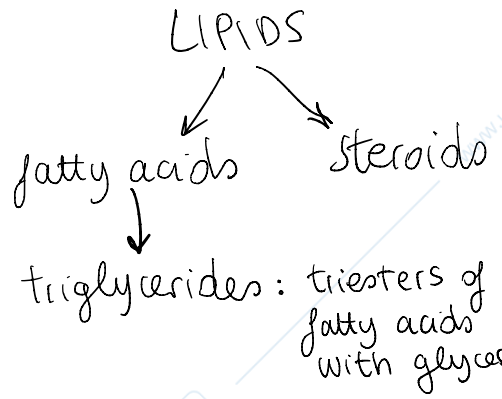 LIPIDS
fatty acids
steroids
triglycerides: triesters of
fatty acids
with glycer